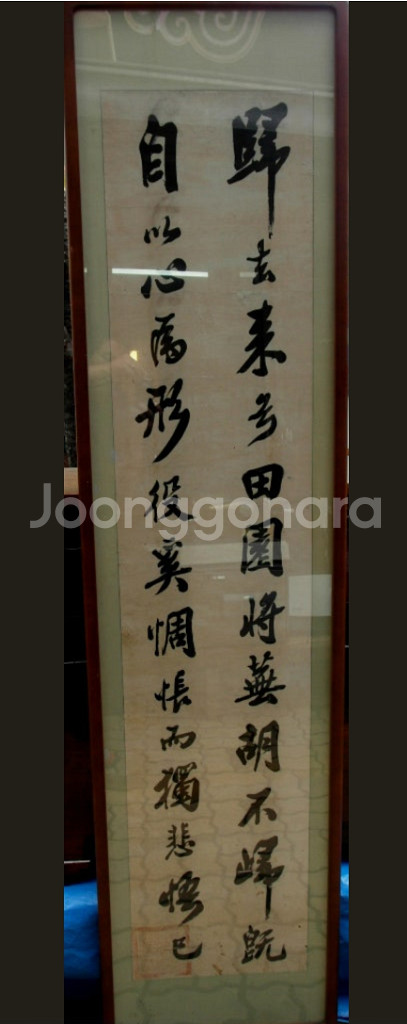 歸去来兮田園将蕪胡不歸既
自以心為形役奚惆悵而獨悲悟已
Joonggonara